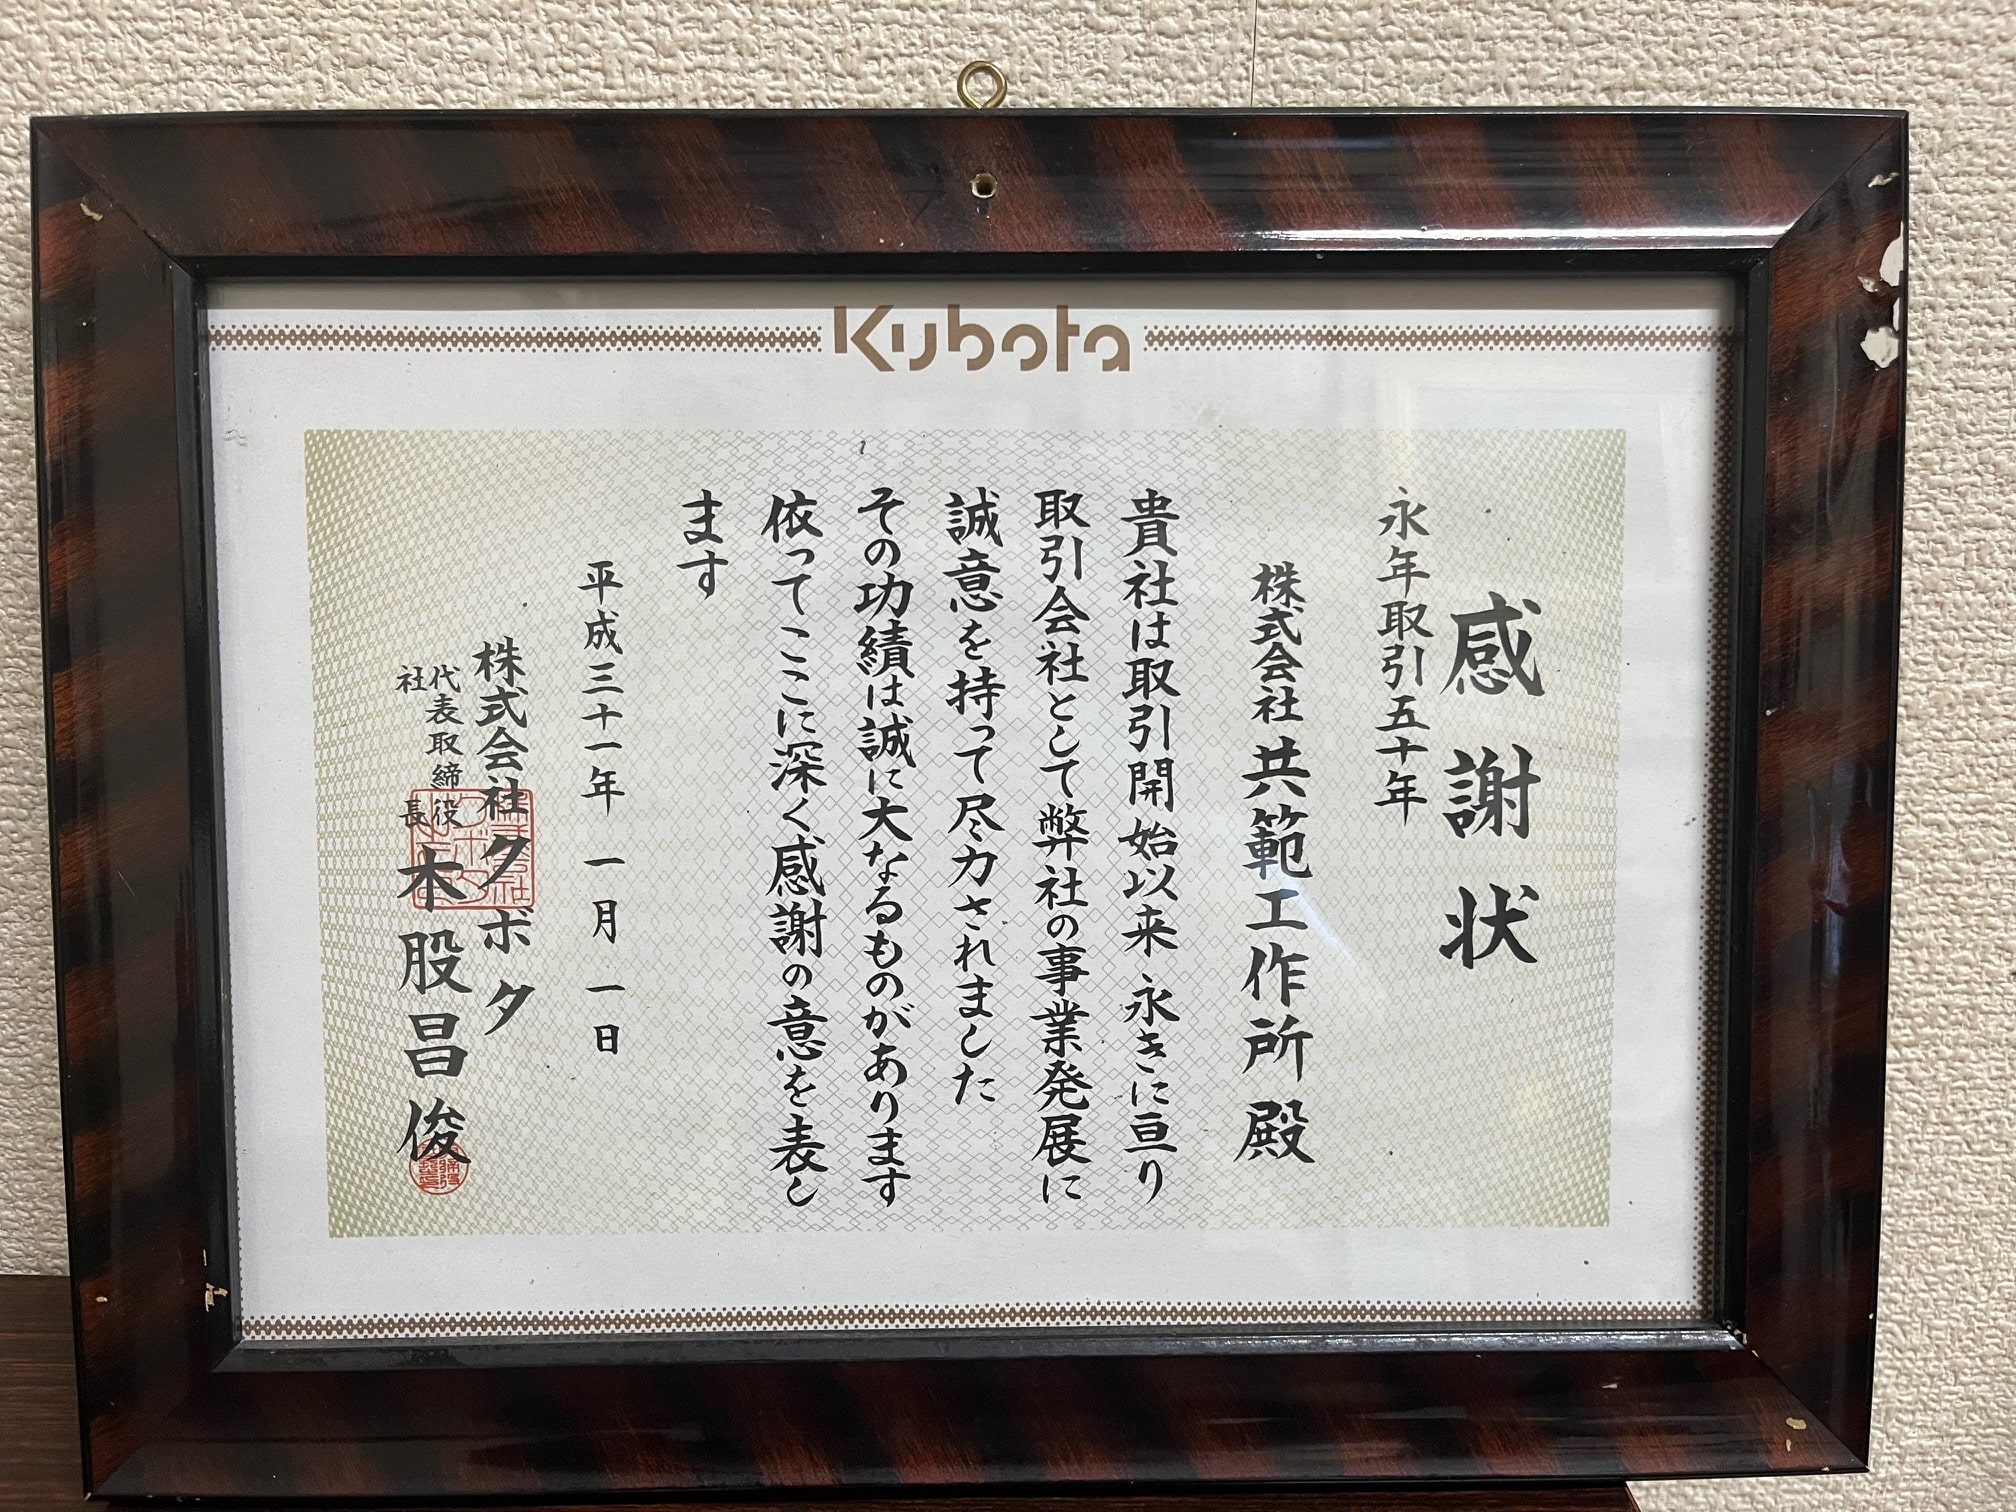 Kubota
感謝状
永年取引五十年
株式会社共範工作所殿
貴社は取引開始以来永きに亘り
取引会社として弊社の事業発展に
誠意を持って尽力されました
その功績は誠に大なるものがあります
依ってここに深く感謝の意を表し
ます
平成三十一年一月一日
株式会社クボタ
代表取締役
社長
木股昌俊